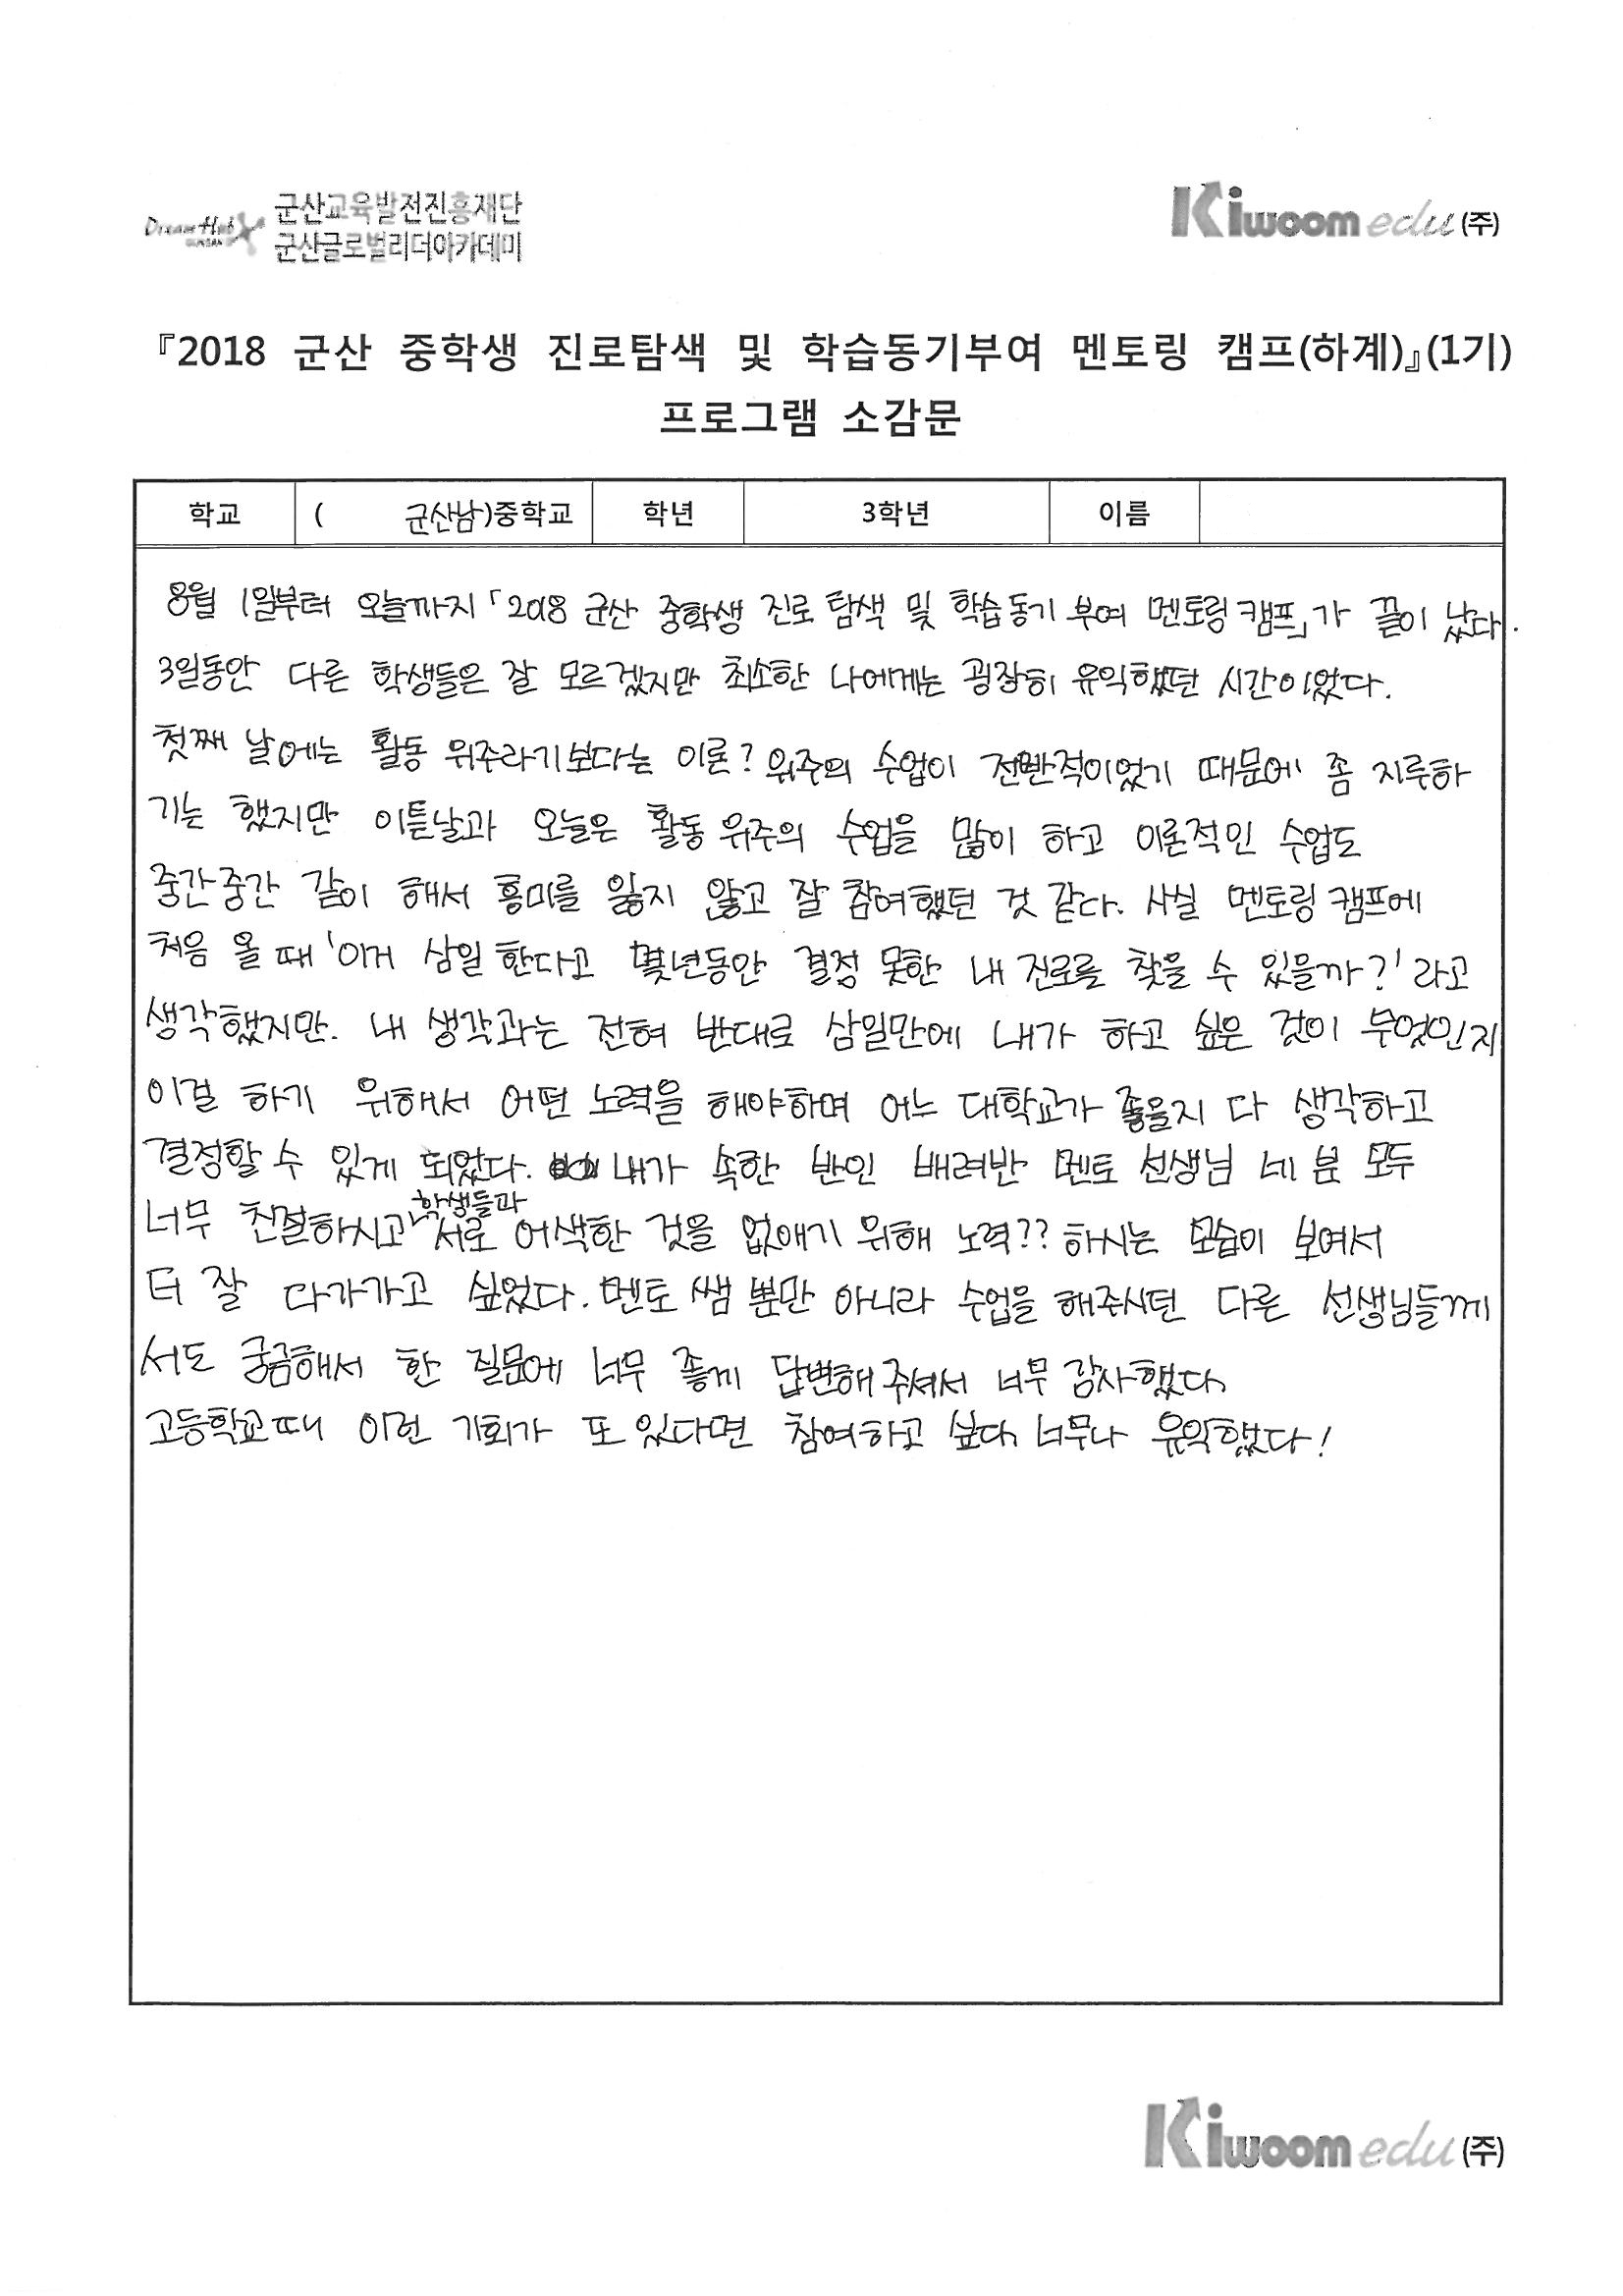 Dream Hub GUNSAN 군산교육발전진흥재단
군산글로벌리더아카데미
Kiwoom edu (주)
『2018 군산 중학생 진로탐색 및 학습동기부여 멘토링 캠프(하계)』(1기)
프로그램 소감문
학교 ( 군산남)중학교 학년 3학년 이름
8월 1일부터 오늘까지 「2018 군산 중학생 진로 탐색 및 학습동기 부여 멘토링 캠프」가 끝이 났다.
3일동안 다른 학생들은 잘 모르겠지만 최소한 나에게는 굉장히 유익했던 시간이었다.
첫째 날에는 활동 위주라기보다는 이론? 위주의 수업이 전반적이었기 때문에 좀 지루하
기는 했지만 이튿날과 오늘은 활동 위주의 수업을 많이 하고 이론적인 수업도
중간중간 같이 해서 흥미를 잃지 않고 잘 참여했던 것 같다. 사실 멘토링 캠프에
처음 올 때 '이거 삼일 한다고 몇년동안 결정 못한 내 진로를 찾을 수 있을까?' 라고
생각했지만. 내 생각과는 전혀 반대로 삼일만에 내가 하고 싶은 것이 무엇인지
이걸 하기 위해서 어떤 노력을 해야하며 어느 대학교가 좋을지 다 생각하고
결정할 수 있게 되었다. 내가 속한 반인 배려반 멘토 선생님 네 분 모두
너무 친절하시고 학생들과 서로 어색한 것을 없애기 위해 노력?? 하시는 모습이 보여서
더 잘 다가가고 싶었다. 멘토 쌤 뿐만 아니라 수업을 해주시던 다른 선생님들께
서도 궁금해서 한 질문에 너무 좋게 답변해 주셔서 너무 감사했다.
고등학교때 이런 기회가 또 있다면 참여하고 싶다. 너무나 유익했다!
Kiwoom edu (주)